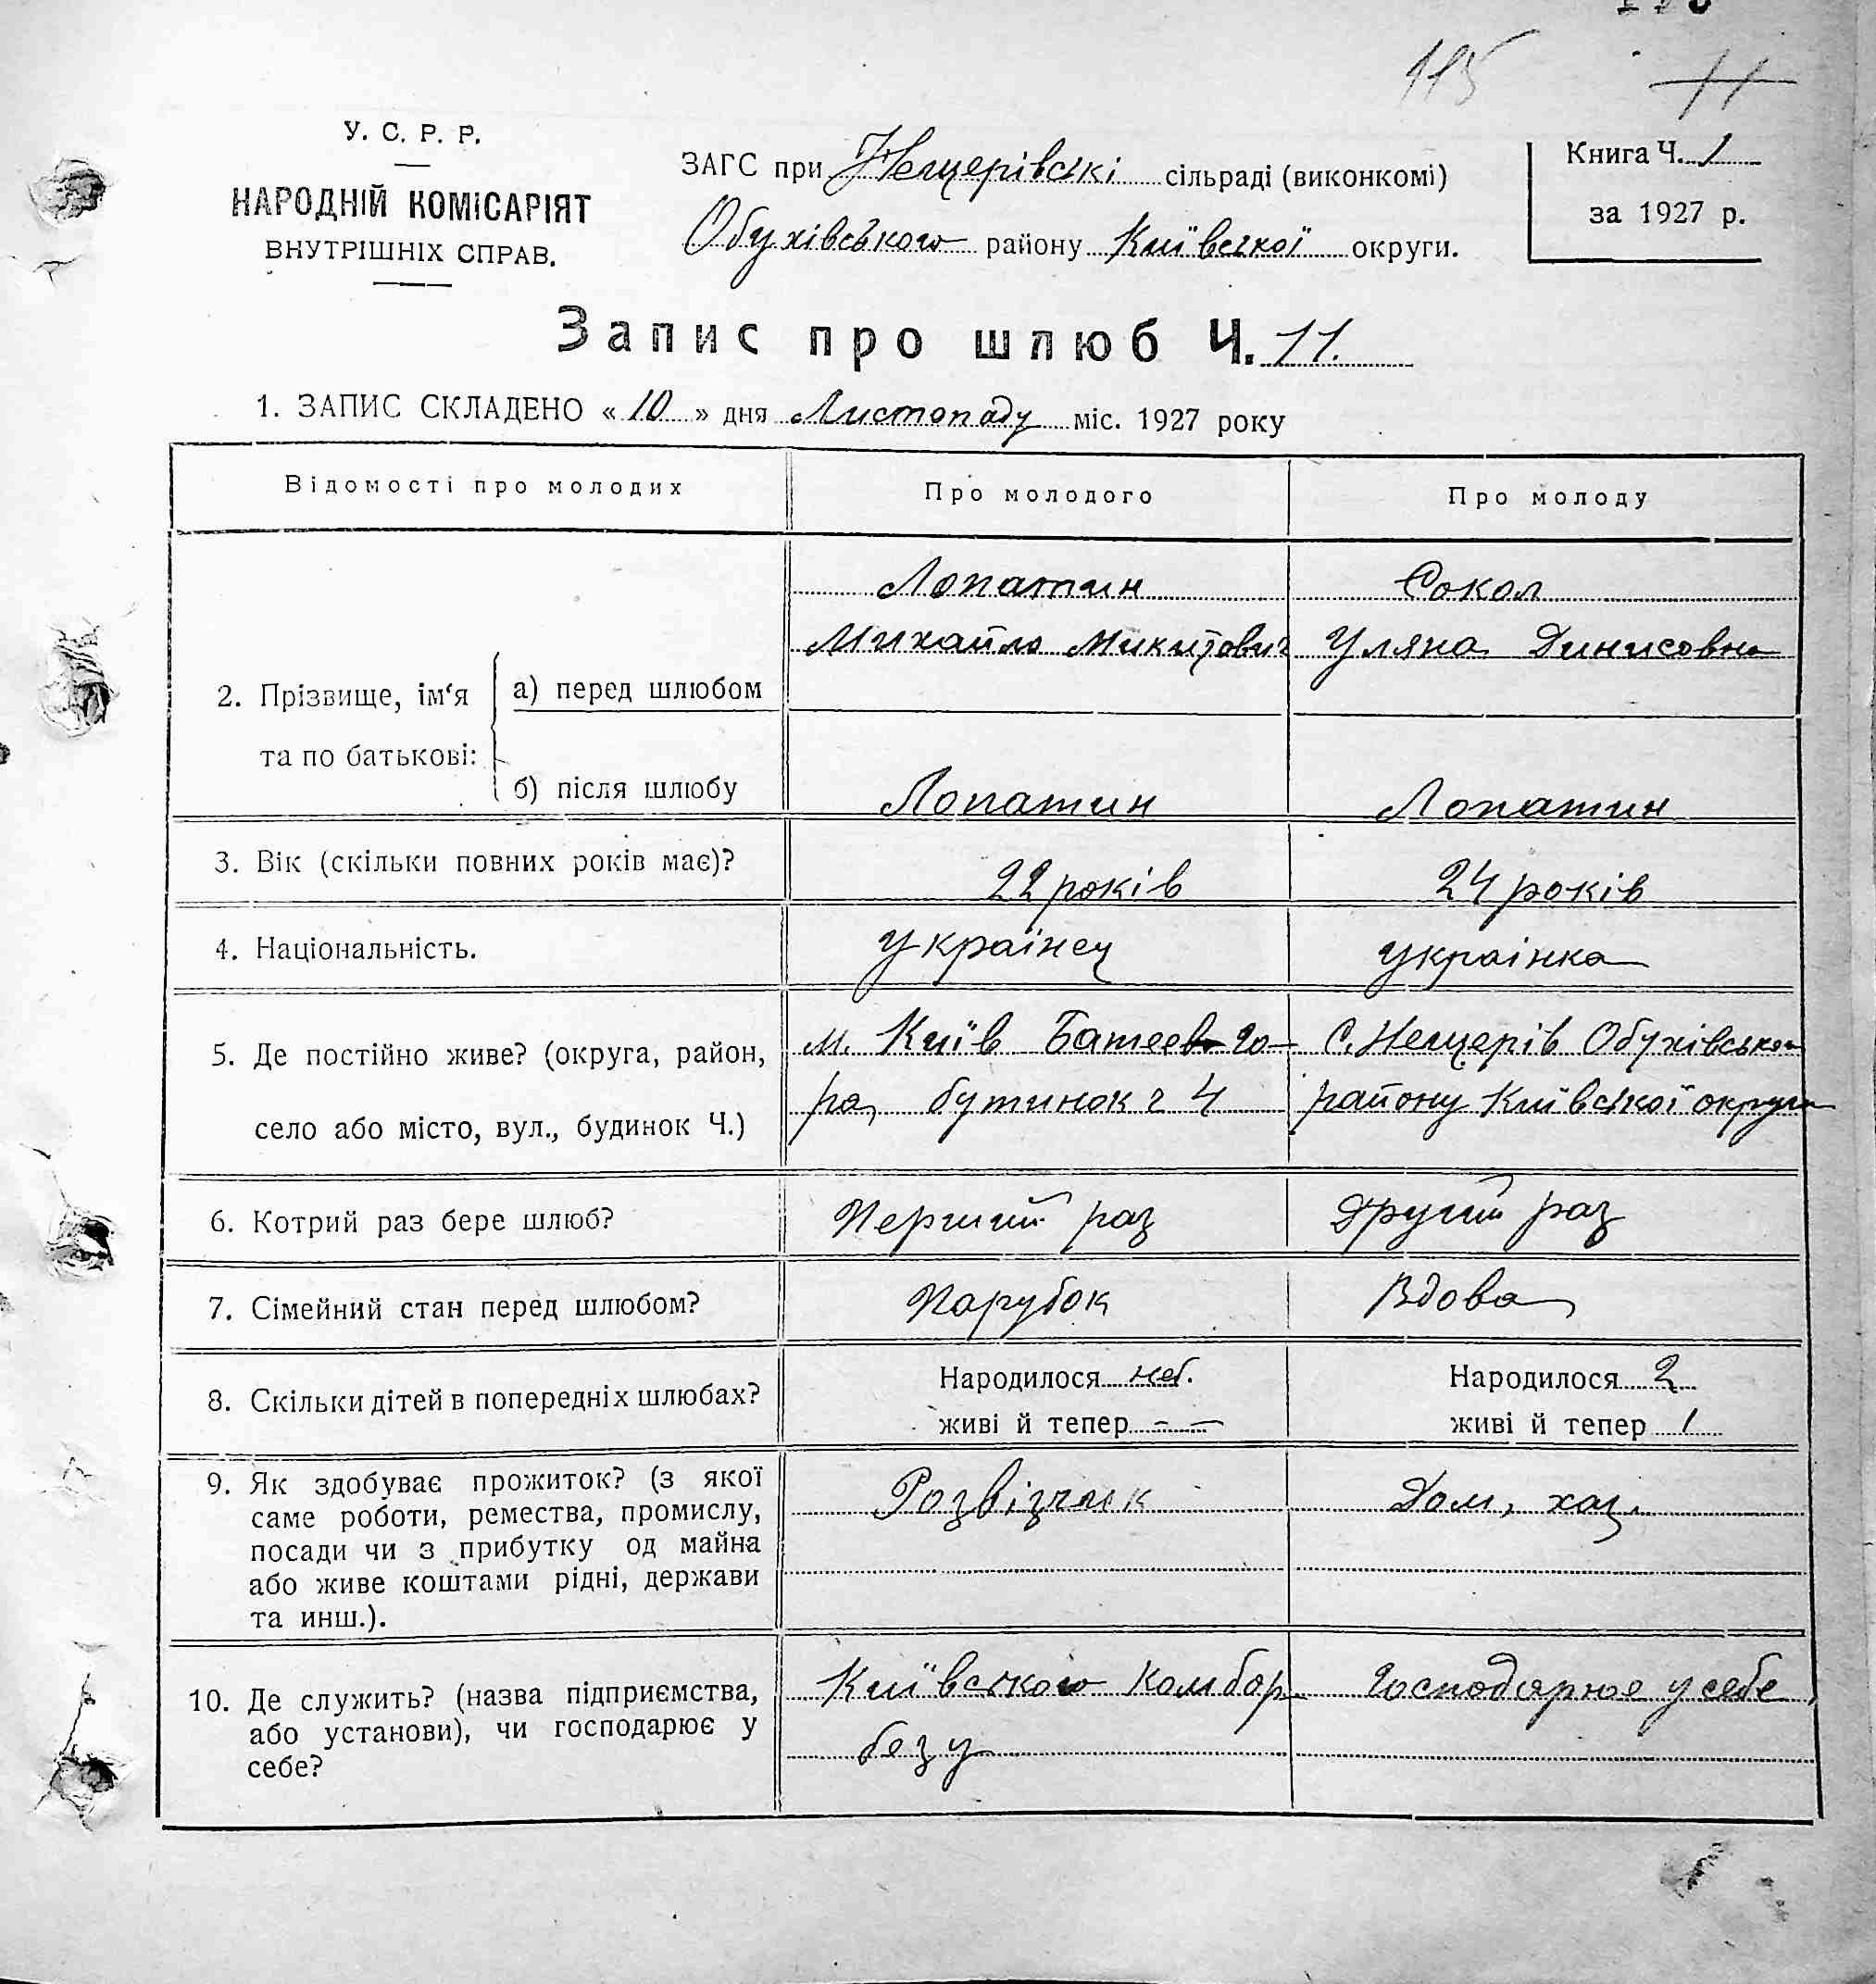 115 11
У. С. Р. Р.
НАРОДНІЙ КОМІСАРІЯТ
ВНУТРІШНІХ СПРАВ.
ЗАГС при Нещерівські сільраді (виконкомі)
Обухівського району Київської округи.
Книга Ч. 1
за 1927 р.
Запис про шлюб Ч. 11.
1. ЗАПИС СКЛАДЕНО « 10 » дня Листопаду міс. 1927 року
Відомості про молодих Про молодого Про молоду
Лопатин Сокол
Михайло Микитович Уляна Динисовна
2. Прізвище, ім‘я
та по батькові:
а) перед шлюбом
б) після шлюбу Лопатин Лопатин
3. Вік (скільки повних років має)? 22 років 24 років
4. Національність. Українец Українка
5. Де постійно живе? (округа, район,
село або місто, вул., будинок Ч.)
м. Київ Батеев го-
ра, бутинок ч 4
С. Нещерів Обухівськог
району Київської округи
6. Котрий раз бере шлюб? Перший раз Другий раз
7. Сімейний стан перед шлюбом? Парубок Вдова
8. Скільки дітей в попередніх шлюбах?
Народилося неб.
живі й тепер — —
Народилося 2
живі й тепер 1
9. Як здобуває прожиток? (з якої
саме роботи, ремества, промислу,
посади чи з прибутку од майна
або живе коштами рідні, держави
та инш.).
Розвізчик
Дом, хаз.
10. Де служить? (назва підприємства,
або установи), чи господарює у
себе?
Київського Комбор
безу
Господарює у себе